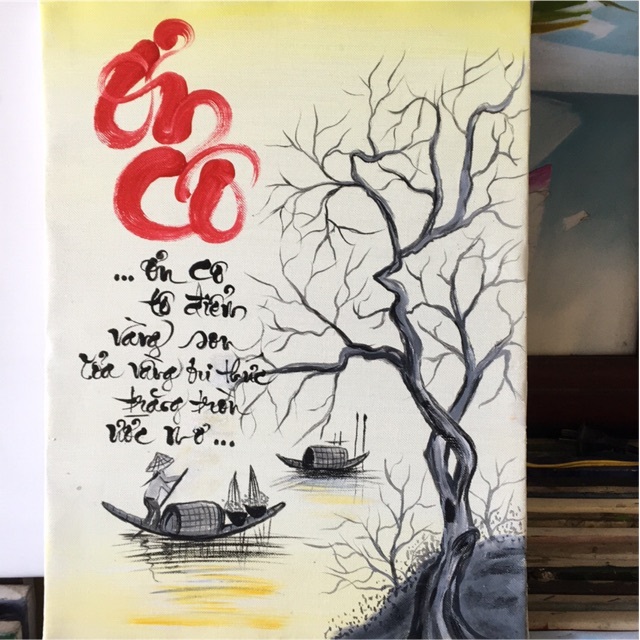 ơn
cô
... ơn cô
tô điểm
vàng son
tỏa vầng tri thức
trăng tròn
ước mơ...